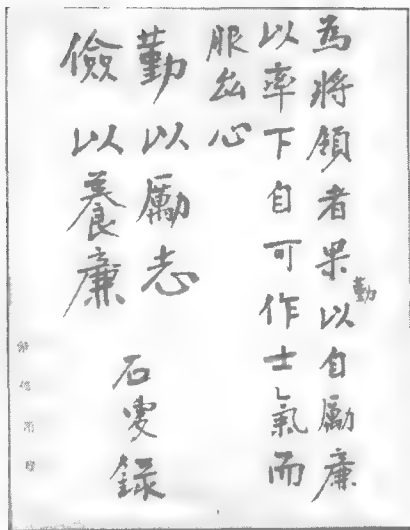 為將領者果勤以自勵廉
以率下自可作士氣而
服心
勤以勵志
儉以養廉
石叟錄